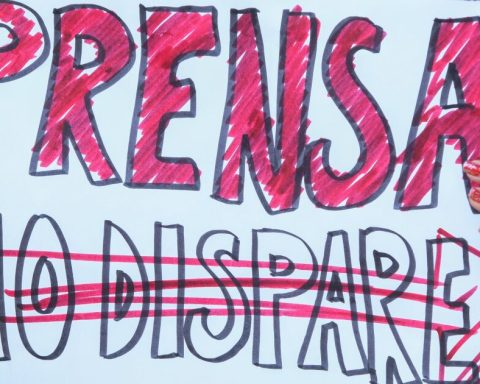 PRENSA
NO DISPARE